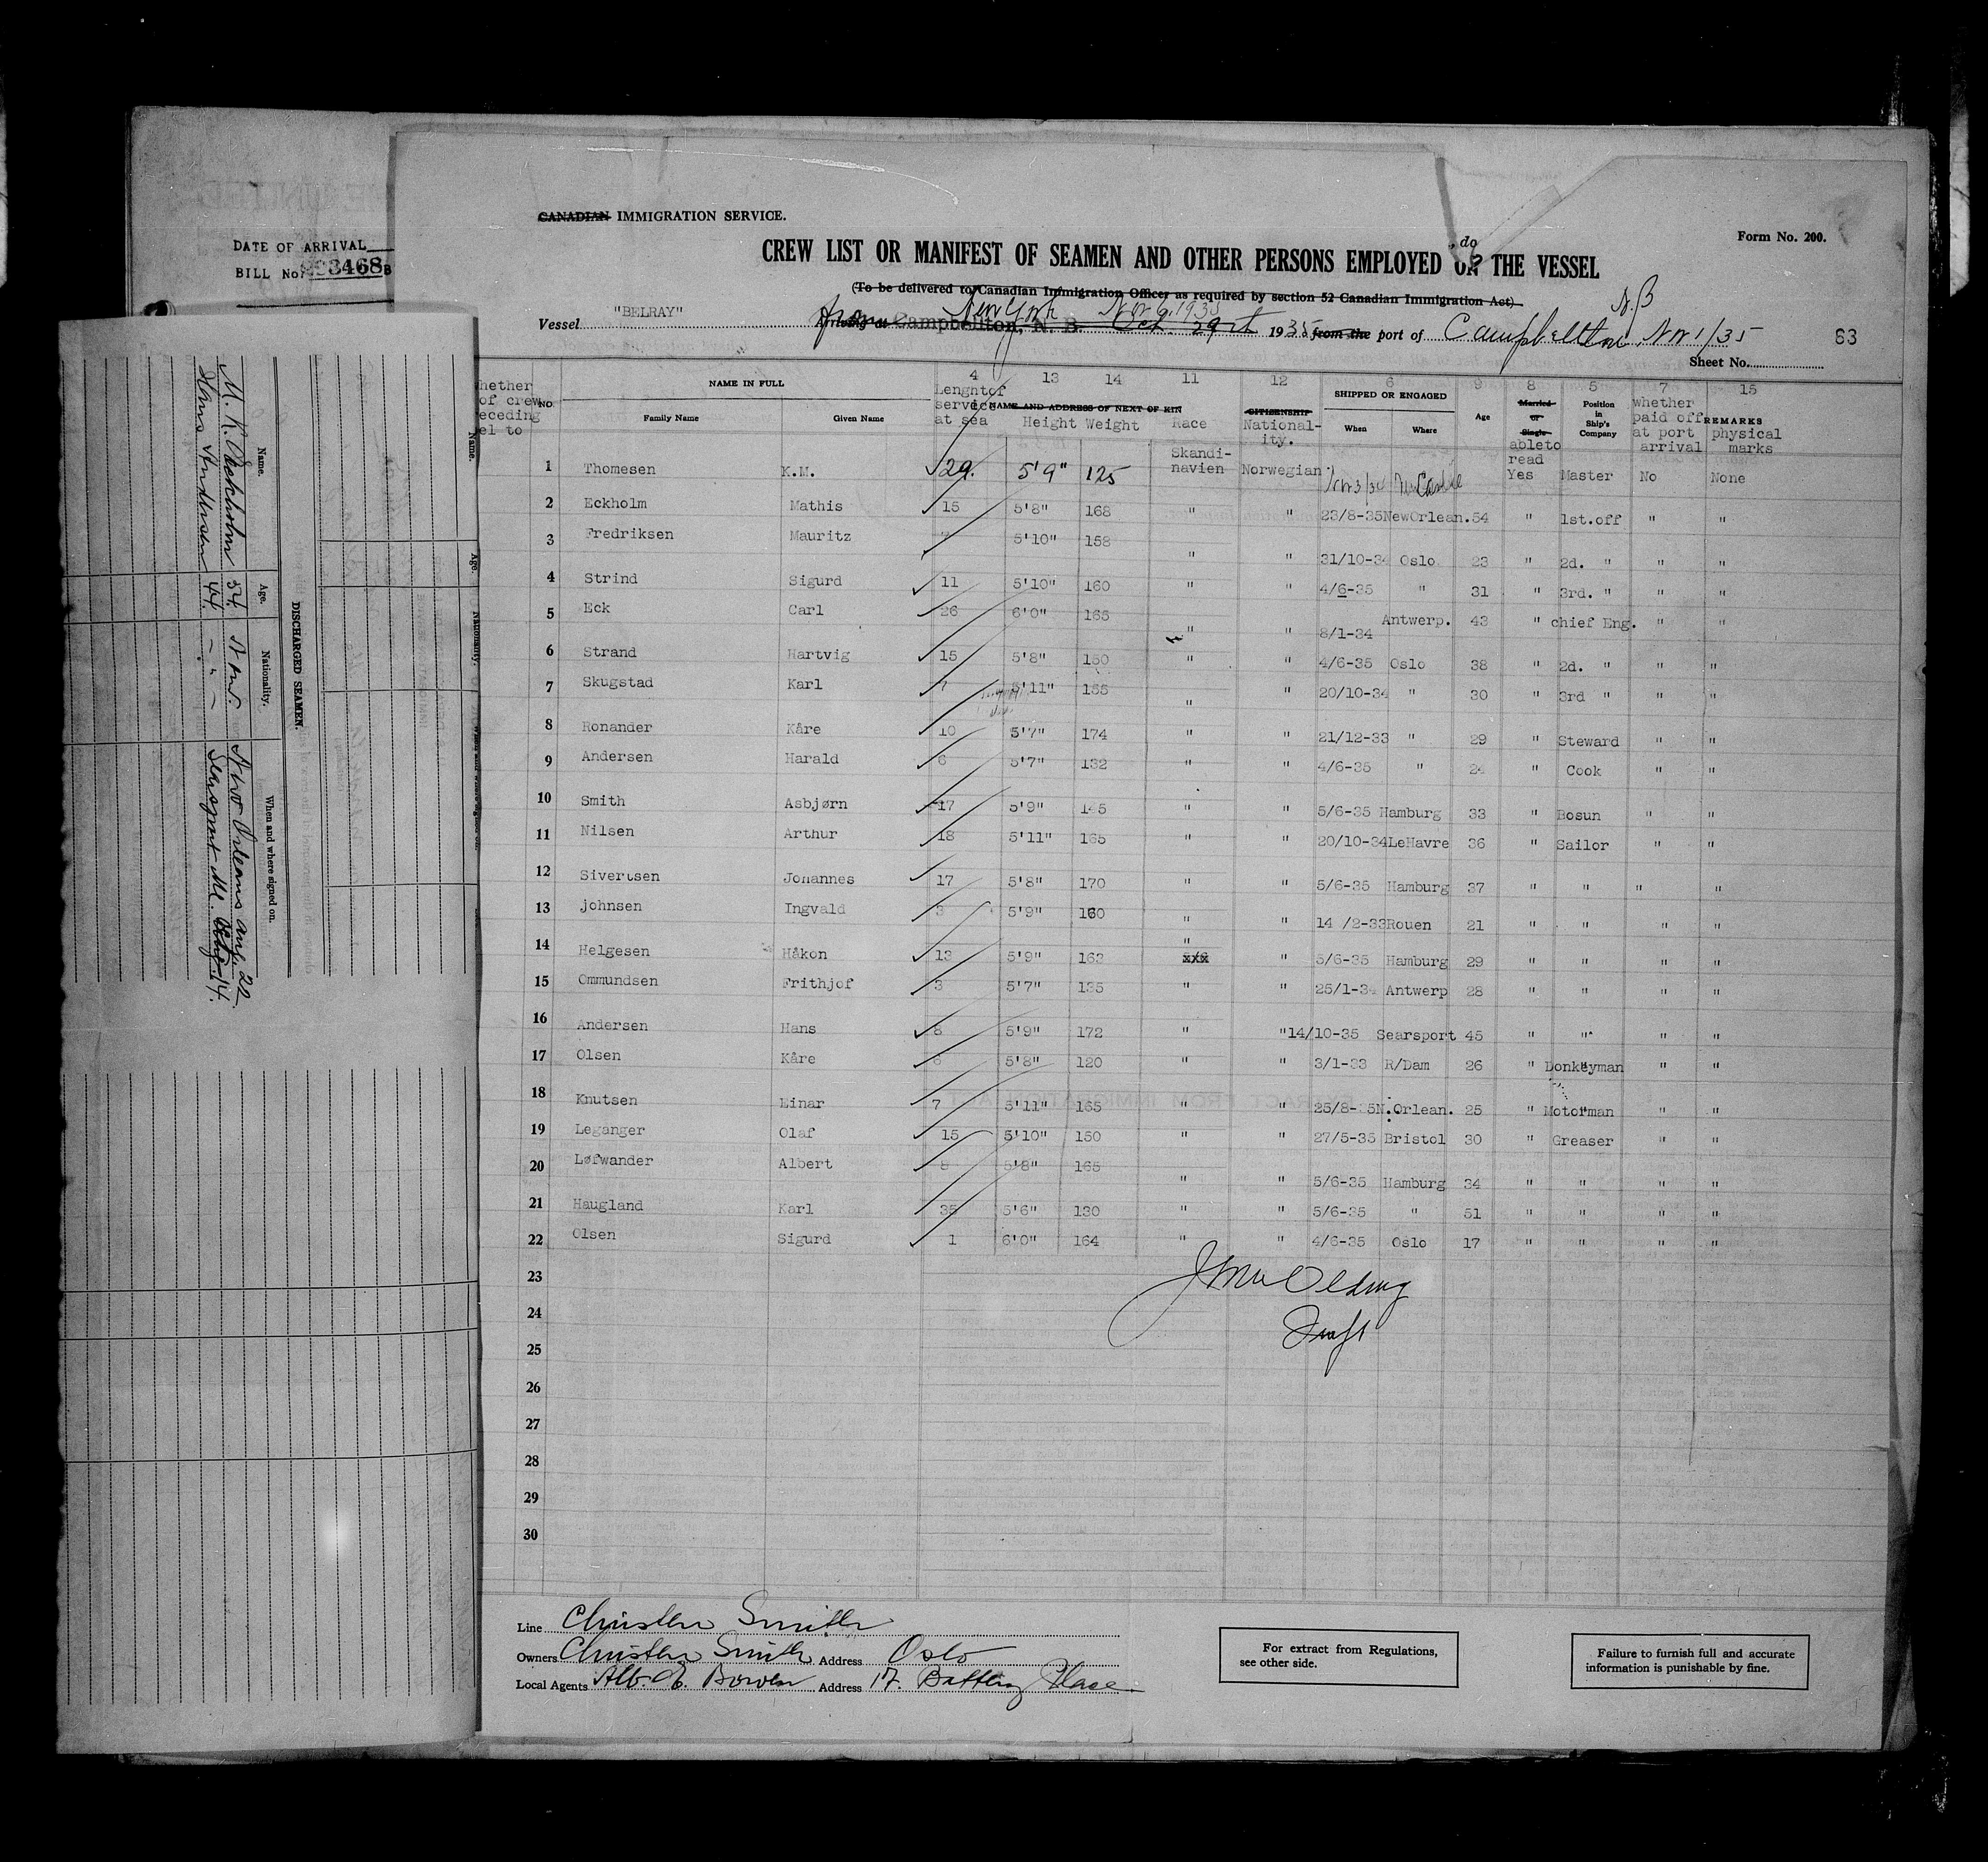 DATE OF ARRIVAL
BILL No. 3468 B
CANADIAN IMMIGRATION SERVICE.
Form No. 200.
CREW LIST OR MANIFEST OF SEAMEN AND OTHER PERSONS EMPLOYED ON THE VESSEL
(To be delivered to Canadian Immigration Officer as required by section 52 Canadian Immigration Act)
New York Nov 6, 1935 N.B
Vessel "BELRAY" Arriving at from Campbellton, N. B. Oct. 29th 1935 from the port of Campbellton Nov 1/35 63
Sheet No.
hether of crew eceding el to
NO. NAME IN FULL Family Name Given Name
4 Lenghtof service at sea
NAME AND ADDRESS OF NEXT OF KIN
13 Height 14 Weight 11 Race 12 CITIZENSHIP National-ity.
6 SHIPPED OR ENGAGED When Where
9 Age 8 Married or Single ableto read 5 Position in Ship's Company 7 whether paid off at port arrival 15 REMARKS physical marks
1 Thomesen K.M. 29. 5'9" 125 Skandi-navien Norwegian Yes Master No None
2 Eckholm Mathis 15 5'8" 168 " " 23/8-35 NewOrlean. 54 " 1st.off " "
3 Fredriksen Mauritz 5'10" 158 " " 31/10-34 Oslo 23 " 2d. " " "
4 Strind Sigurd 11 5'10" 160 " " 4/6-35 " 31 " 3rd. " " "
5 Eck Carl 26 6'0" 165 " " 8/1-34 Antwerp. 43 " chief Eng. " "
6 Strand Hartvig 15 5'8" 150 " " 4/6-35 Oslo 38 " 2d. " " "
7 Skugstad Karl 7 5'11" 155 " " 20/10-34 " 30 " 3rd " " "
8 Ronander Kåre 10 5'7" 174 " " 21/12-33 " 29 " Steward " "
9 Andersen Harald 6 5'7" 132 " " 4/6-35 " 24 " Cook " "
10 Smith Asbjørn 17 5'9" 145 " " 5/6-35 Hamburg 33 " Bosun " "
11 Nilsen Arthur 18 5'11" 165 " " 20/10-34 LeHavre 36 " Sailor " "
12 Sivertsen Johannes 17 5'8" 170 " " 5/6-35 Hamburg 37 " " " "
13 johnsen Ingvald 3 5'9" 160 " " 14 /2-33 Rouen 21 " " " "
14 Helgesen Håkon 13 5'9" 163 " xxx " 5/6-35 Hamburg 29 " " " "
15 Ommundsen Frithjof 3 5'7" 135 " " 25/1-34 Antwerp 28 " " " "
16 Andersen Hans 8 5'9" 172 " " 14/10-35 Searsport 45 " " " "
17 Olsen Kåre 6 5'8" 120 " " 3/1-33 R/Dam 26 " Donkeyman " "
18 Knutsen Einar 7 5'11" 165 " " 25/8-35 N.Orlean. 25 " Motorman " "
19 Leganger Olaf 15 5'10" 150 " " 27/5-35 Bristol 30 " Greaser " "
20 Løfwander Albert 5'8" 165 " " 5/6-35 Hamburg 34 " " " "
21 Haugland Karl 35 5'6" 130 " " 5/6-35 " 51 " " " "
22 Olsen Sigurd 1 6'0" 164 " " 4/6-35 Oslo 17 " " " "
23
24
25
26
27
28
29
30
Line Christen Smith
Owners Christen Smith Address Oslo
Local Agents Alb. E. Bowen Address 17. Battery Place
For extract from Regulations, see other side.
Failure to furnish full and accurate information is punishable by fine.
DISCHARGED SEAMEN.
Name. Age. Nationality. When and where signed on.
M. K. Eckholm 54 Norw. New Orleans aug. 22
Hans Andersen 44. - " - Searsport Me. Oct. 14.
Name. Age. Nationality.